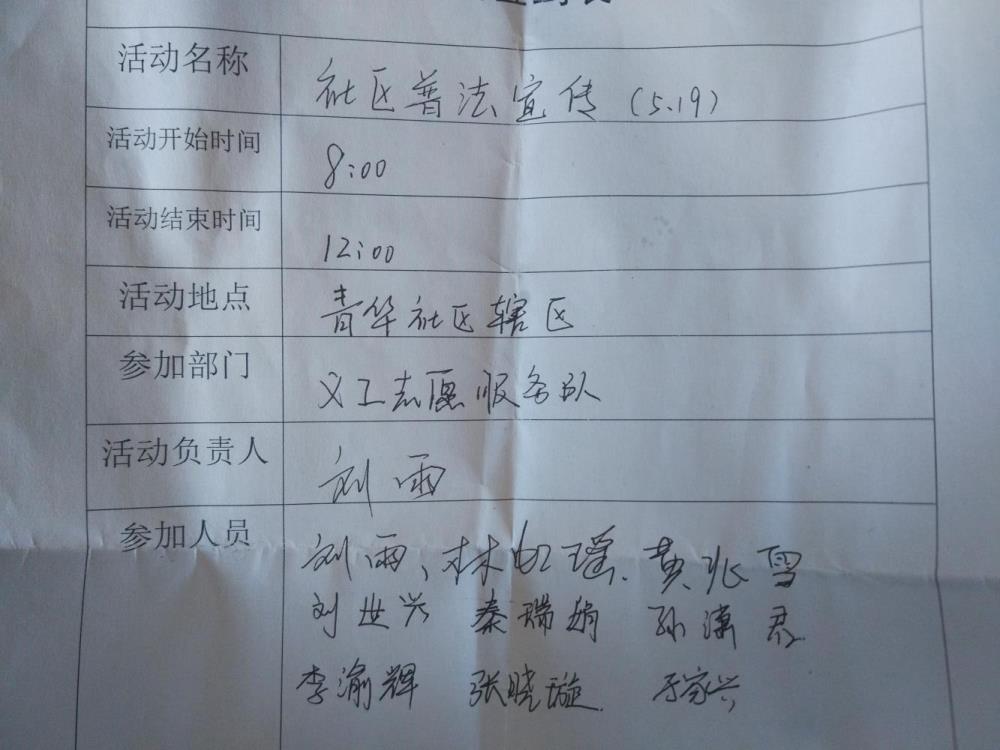 活动名称 社区普法宣传(5.19)
活动开始时间 8:00
活动结束时间 12:00
活动地点 青华社区辖区
参加部门 义工志愿服务队
活动负责人 刘雨
参加人员 刘雨、林如瑶、黄兆雪
刘世兴 秦瑞娟 孙潇君
李渝辉 张晓璇 于家兴